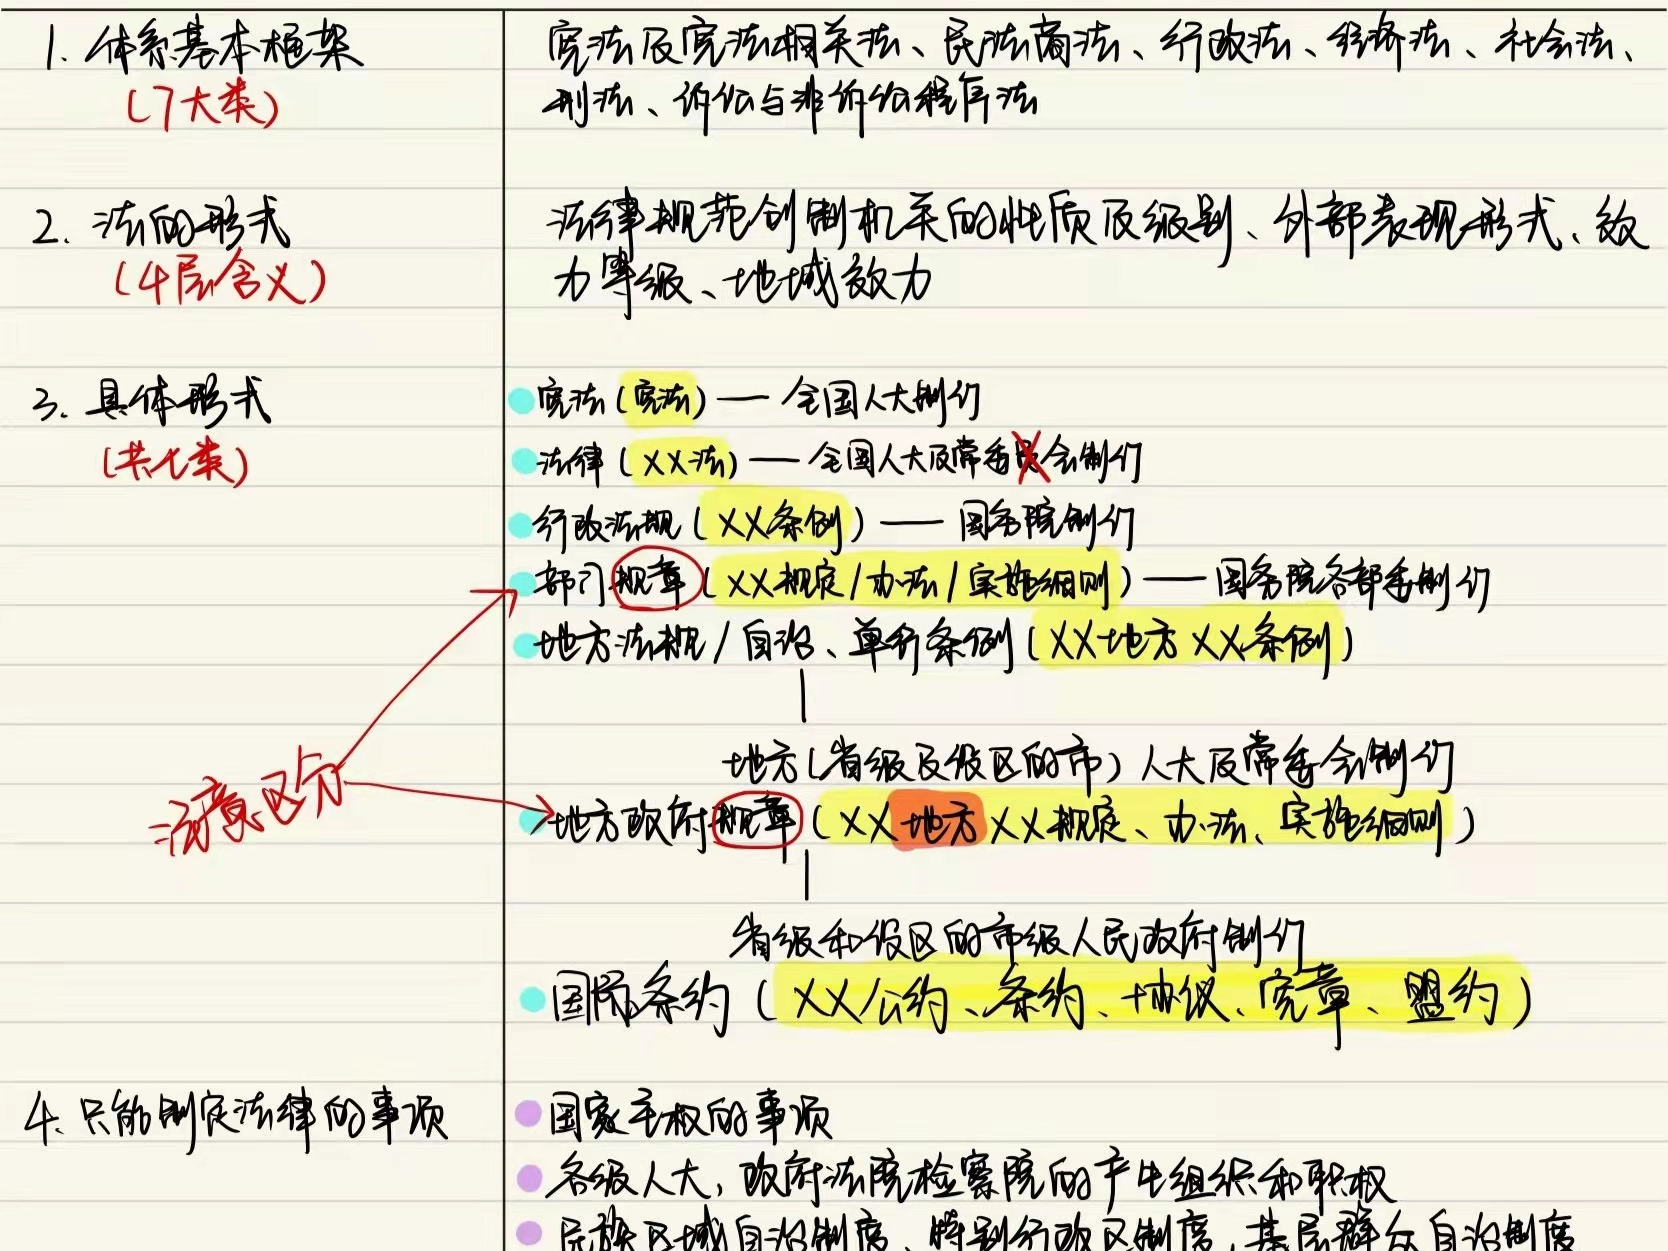 1. 体系基本框架
(7大类)
宪法及宪法相关法、民法商法、行政法、经济法、社会法、
刑法、诉讼与非诉讼程序法
2. 法的形式
(4层含义)
法律规范创制机关的性质及级别、外部表现形式、效
力等级、地域效力
3. 具体形式
(共七类)
宪法(宪法)——全国人大制订
法律(XX法)——全国人大及常委员会制订
行政法规(XX条例)——国务院制订
部门规章(XX规定/办法/实施细则)——国务院各部委制订
地方法规/自治、单行条例(XX地方XX条例)
地方(省级及设区的市)人大及常委会制订
注意区分
地方政府规章(XX地方XX规定、办法、实施细则)
省级和设区的市级人民政府制订
国际条约(XX公约、条约、协议、宪章、盟约)
4. 只能制定法律的事项
国家主权的事项
各级人大,政府法院检察院的产生组织和职权
民族区域自治制度、特别行政区制度、基层群众自治制度